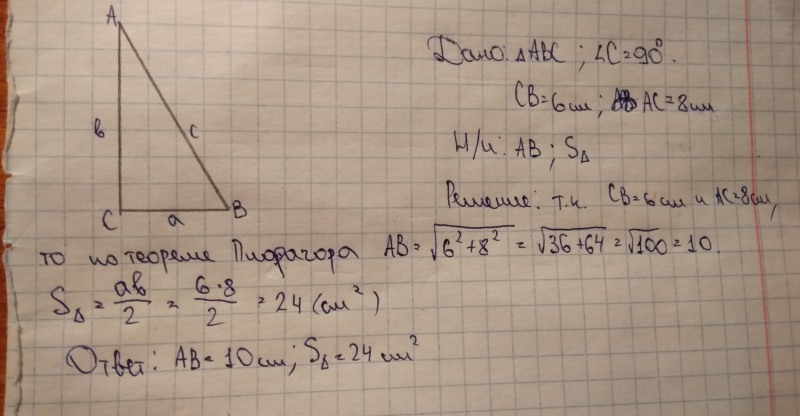 A
в
c
C
a
B
Дано: △ABC ; ∠C=90°.
CB=6см ; AC=8см
Н/и: AB ; S△
Решение: т.к. CB=6см и AC=8см,
то по теореме Пифагора AB = √6²+8² = √36+64 = √100 = 10.
S△ = aв/2 = 6·8/2 = 24 (см²)
Ответ: AB=10см; S△=24 см²